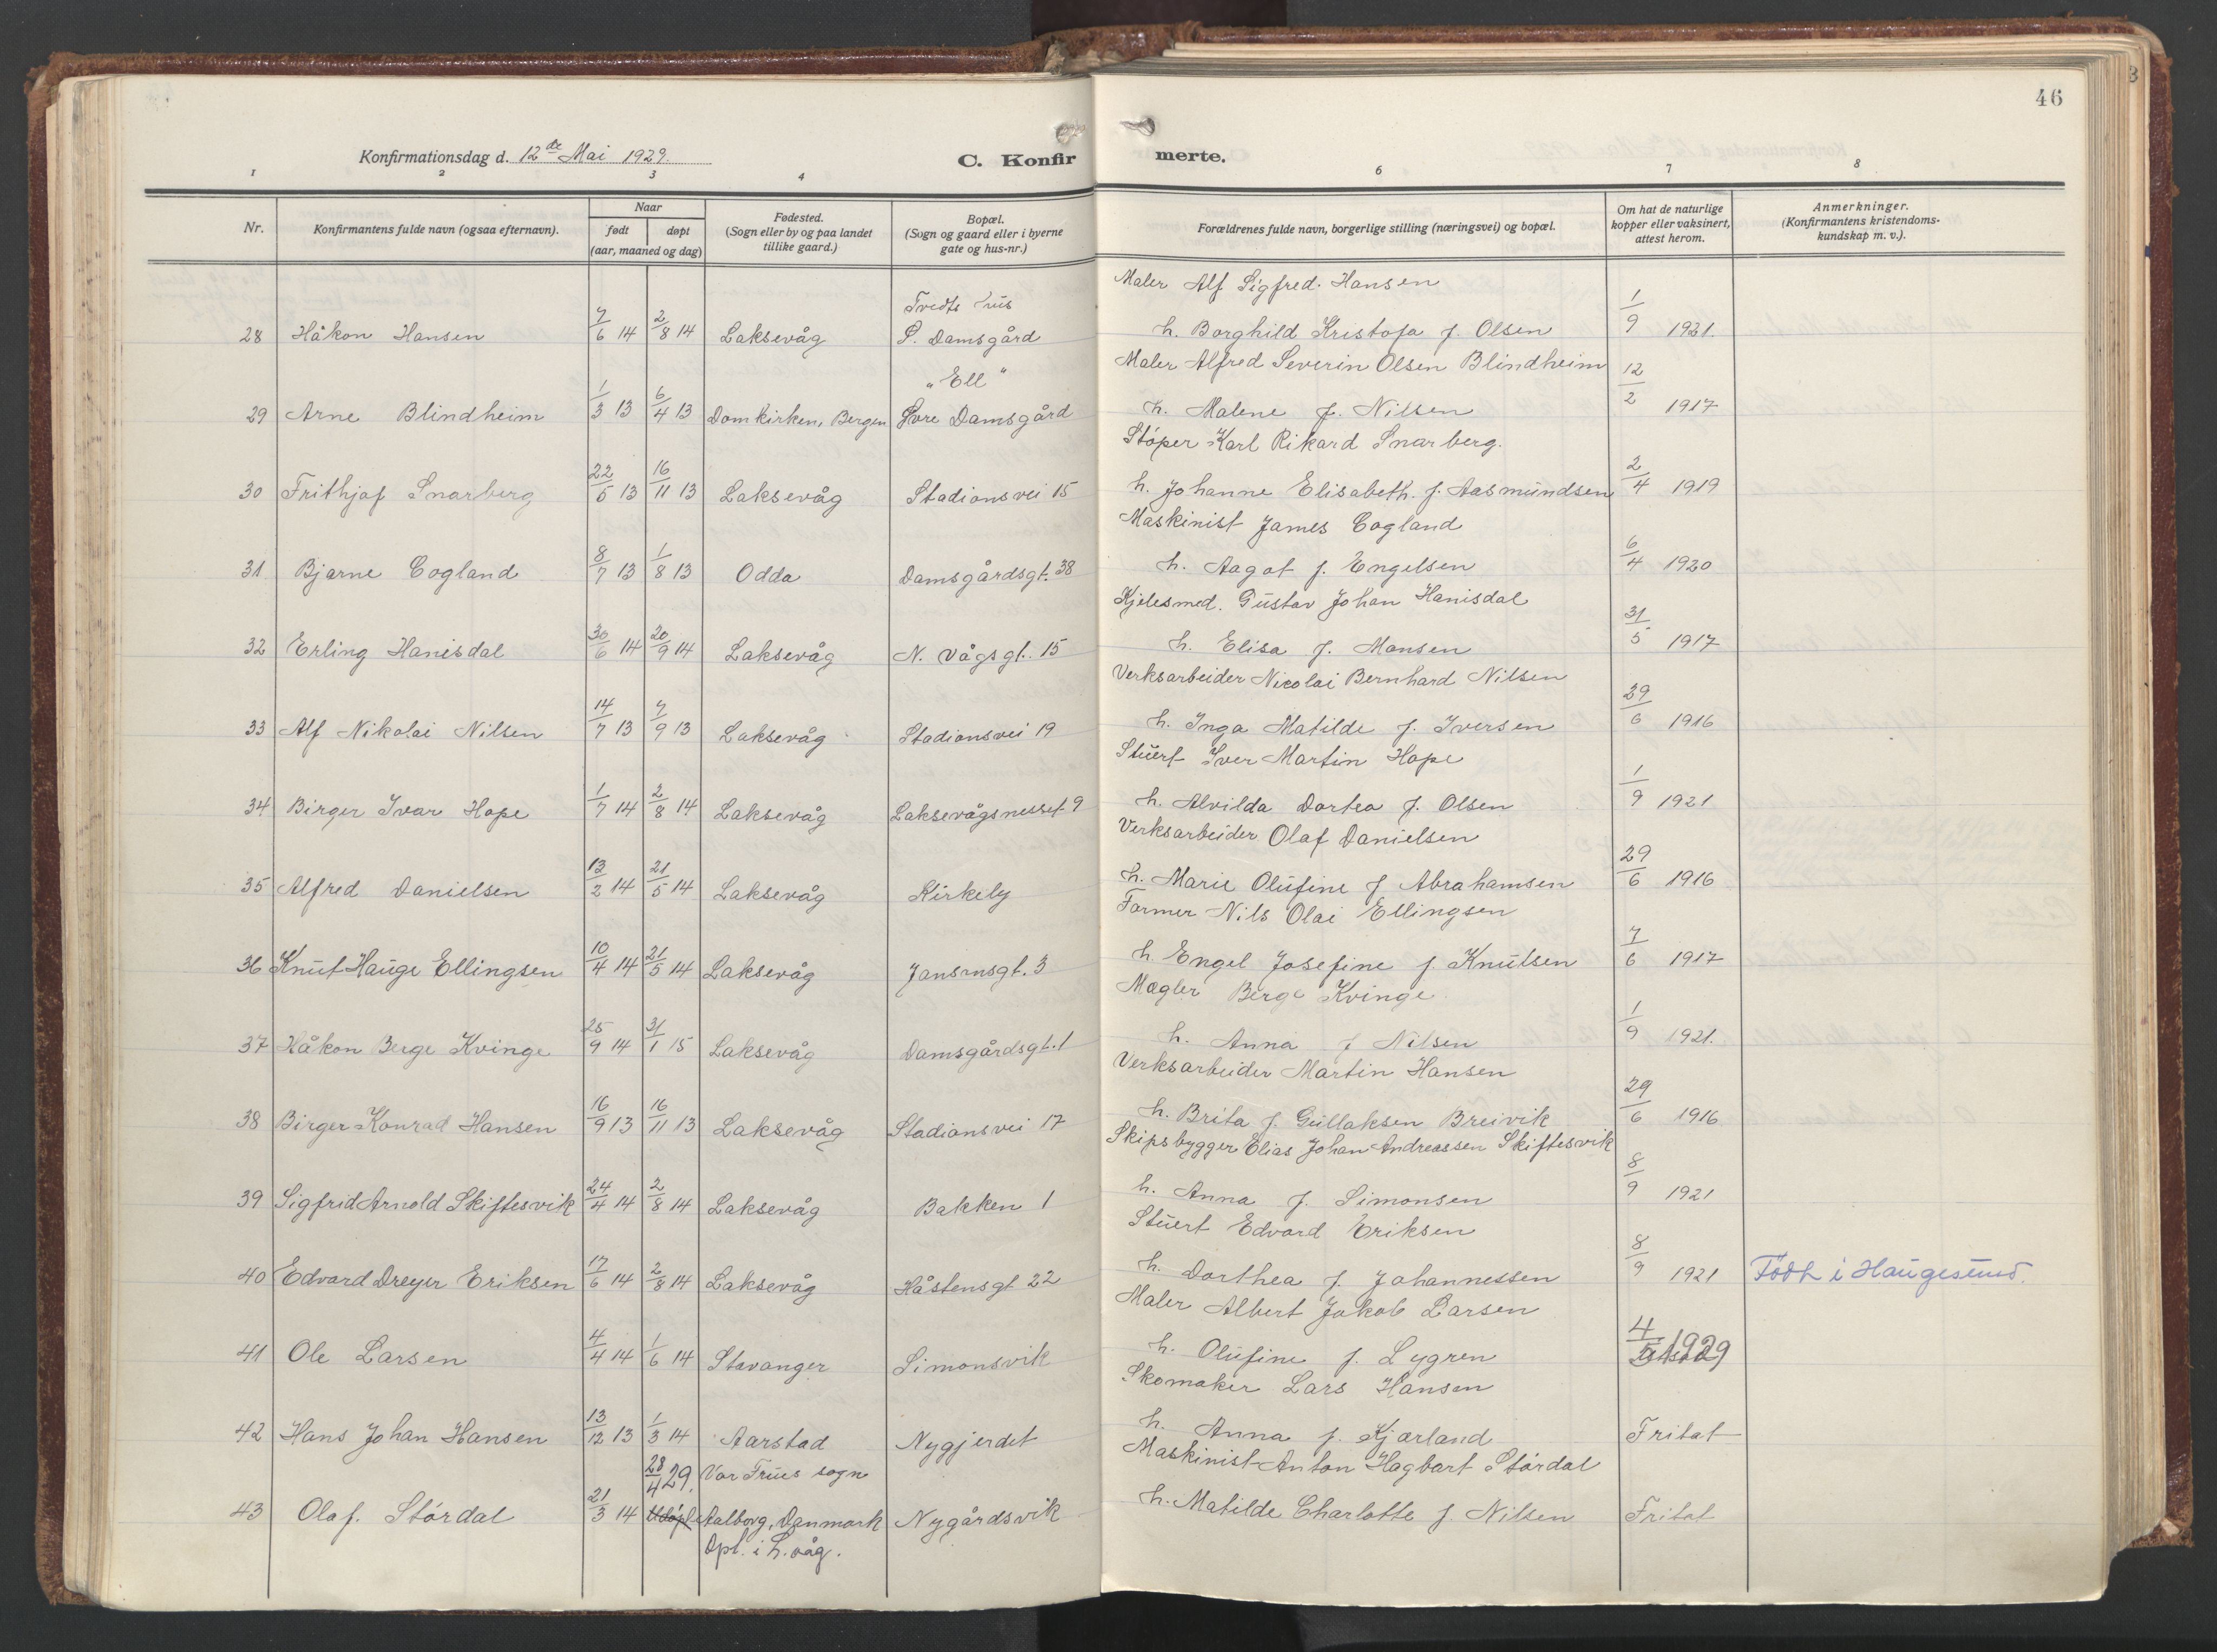 46
Konfirmationsdag d. 12de Mai 1929.
C. Konfir
merte.
1 2 3 4 6 7 8
Nr.
Konfirmantens fulde navn (ogsaa efternavn).
Naar
født døpt
(aar, maaned og dag)
Fødested.
(Sogn eller by og paa landet
tillike gaard.)
Bopæl.
(Sogn og gaard eller i byerne
gate og hus-nr.)
Forældrenes fulde navn, borgerlige stilling (næringsvei) og bopæl.
Om hat de naturlige
kopper eller vaksinert,
attest herom.
Anmerkninger.
(Konfirmantens kristendoms-
kundskap m. v.).
Tvedts hus Maler Alf Sigfred Hansen
28 Håkon Hansen 7/6 14 2/8 14 Laksevåg S. Damsgård h. Borghild Kristofa f. Olsen 1/9 1921.
"Ell" Maler Alfred Severin Olsen Blindheim
29 Arne Blindheim 1/3 13 6/4 13 Domkirken, Bergen Øvre Damsgård h. Malene f. Nilsen 12/2 1917
Støper Karl Rikard Snarberg.
30 Frithjof Snarberg 22/5 13 16/11 13 Laksevåg Stadionsvei 15 h. Johanne Elisabeth f. Aasmundsen 2/4 1919
Maskinist James Cogland
31 Bjarne Cogland 8/7 13 1/8 13 Odda Damsgårdsgt. 38 h. Aagot f. Engelsen 6/4 1920
Kjelesmed. Gustav Johan Hanisdal
32 Erling Hanisdal 30/6 14 20/9 14 Laksevåg N. Vågsgt. 15 h. Elisa f. Monsen 31/5 1917
Verksarbeider Nicolai Bernhard Nilsen
33 Alf Nikolai Nilsen 14/7 13 7/9 13 Laksevåg Stadionsvei 19 h. Inga Matilde f. Iversen 29/6 1916
Stuert Iver Martin Hope
34 Birger Ivar Hope 1/7 14 2/8 14 Laksevåg Laksevågsnesset 9 h. Alvilda Dortea f. Olsen 1/9 1921
Verksarbeider Olaf Danielsen
35 Alfred Danielsen 13/2 14 21/5 14 Laksevåg Kirkely h. Marie Olufine f Abrahamsen 29/6 1916
Former Nils Olai Ellingsen
36 Knut Hauge Ellingsen 10/4 14 21/5 14 Laksevåg Jansensgt. 3 h Engel Josefine f. Knutsen 7/6 1917
Mægler Berge Kvinge
37 Håkon Berge Kvinge 25/9 14 31/1 15 Laksevåg Damsgårdsgt. 1 h. Anna f Nilsen 1/9 1921.
Verksarbeider Martin Hansen
38 Birger Konrad Hansen 16/9 13 16/11 13 Laksevåg Stadionsvei 17 h. Brita f. Gullaksen Breivik 29/6 1916
Skipsbygger Elias Johan Andreassen Skiftesvik
39 Sigfrid Arnold Skiftesvik 24/4 14 2/8 14 Laksevåg Bakken 1 h. Anna f. Simonsen 8/9 1921
Stuert Edvard Eriksen
40 Edvard Dreyer Eriksen 17/6 14 2/8 14 Laksevåg Håstensgt 22 h. Dorthea f. Johannessen 8/9 1921 Født i Haugesund.
Maler Albert Jakob Larsen
41 Ole Larsen 4/4 14 1/6 14 Stavanger Simonsvik h. Olufine f. Lygren 4/5 1929
Skomaker Lars Hansen
42 Hans Johan Hansen 13/12 13 1/3 14 Aarstad Nygjerdet h. Anna f. Kjærland Fritat
28/4 29. Vor Frues sogn Maskinist Anton Hagbart Størdal
43 Olaf. Størdal 21/3 14 Udøpt Aalborg, Danmark Nygårdsvik h. Matilde Charlotte f Nilsen Fritat
Dpt. i L.våg.